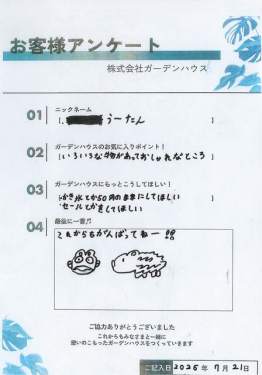 お客様アンケート
株式会社ガーデンハウス
01 ニックネーム
[ うーたん ]
02 ガーデンハウスのお気に入りポイント!
[いろいろな物があっておしゃれなところ ]
03 ガーデンハウスにもっとこうしてほしい!
[かき氷とか50円のままにしてほしい
セールとかをしてほしい ]
04 最後に一言♫
これからもがんばってねー!!
ご協力ありがとうございました
これからもみなさまと一緒に
想いのこもったガーデンハウスをつくっていきます
ご記入日 2025年 7月 21日